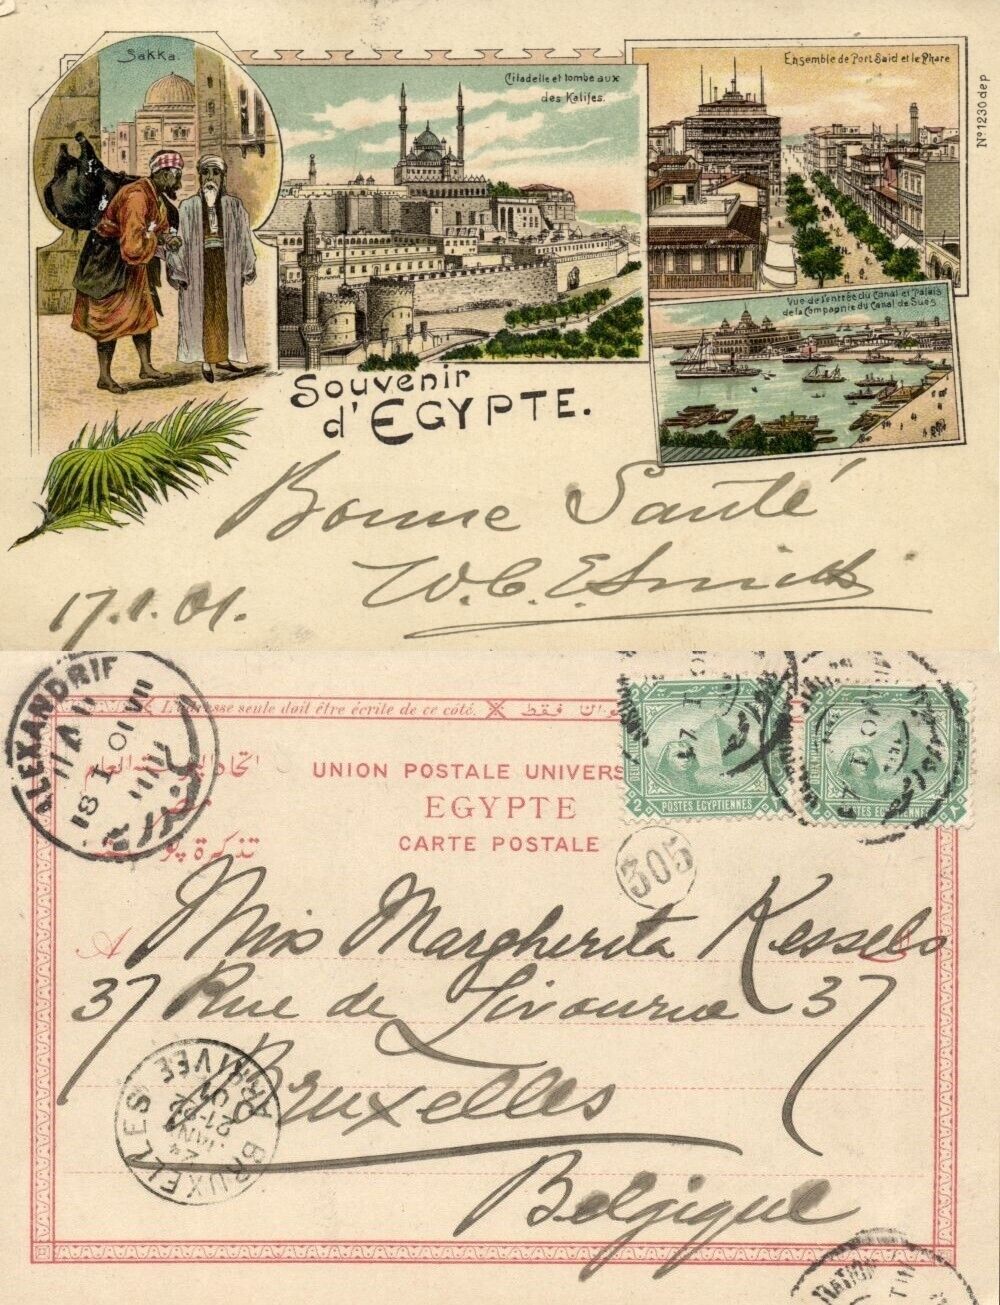 Sakka.
Citadelle et tombeaux
des Kalifes.
Ensemble de Port Said et le Phare
Nº 1230 dep
Vue de l'entrée du Canal et Palais
de la Compagnie du Canal de Sues
Souvenir
d'EGYPTE.
Bonne Santé
W.C.E. Smith
17.1.01.
ALEXANDRIE
18 I 01
L'adresse seule doit être écrite de ce côté.
فقط
UNION POSTALE UNIVERS
EGYPTE
CARTE POSTALE
تذكرة
2
POSTES EGYPTIENNES
POSTES EGYPTIENNES
305
A
Miss Margherita Kessels
37 Rue de Livourne 37
Bruxelles
Belgique
BRUXELLES
ARRIVÉE